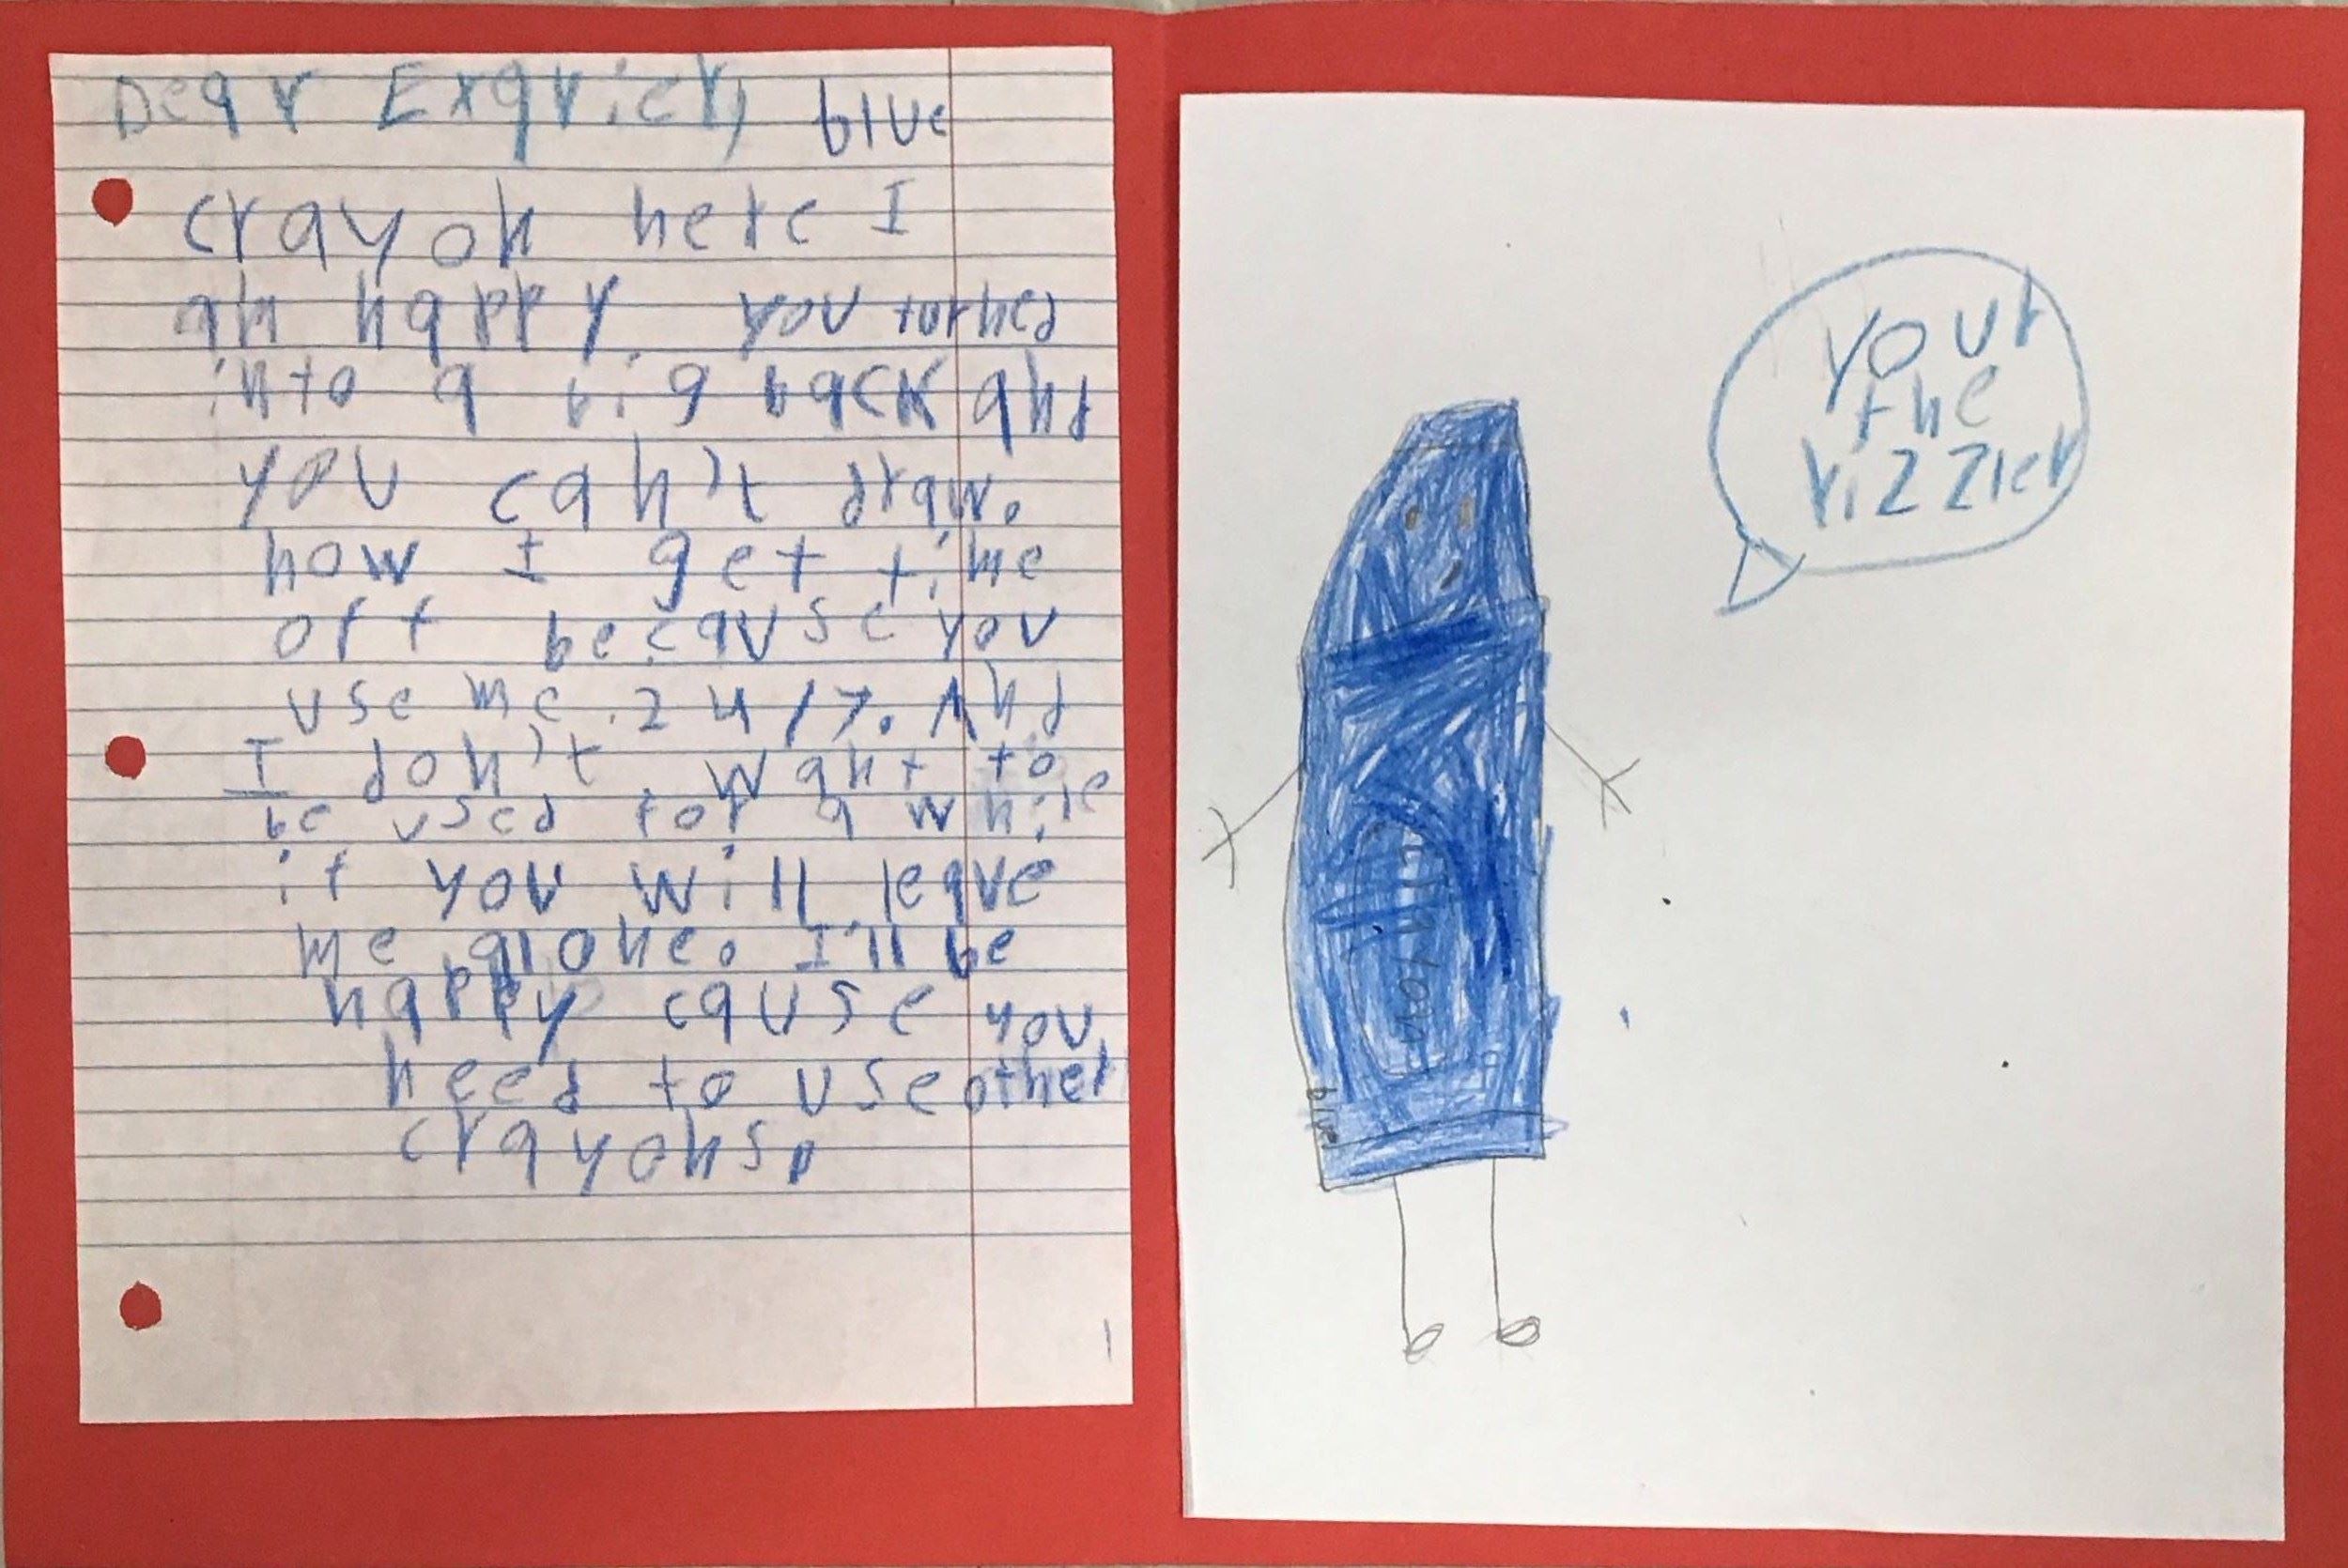 Dear Exqvier, blue
crayon here I
am happy. you turned
into a big back and
you can't draw.
now I get time
off because you
use me 24/7. And
I don't want to
be used for a while
if you will leave
me alone. I'll be
happy cause you
need to use other
crayons.
your
the
rizzler
crayon
blue